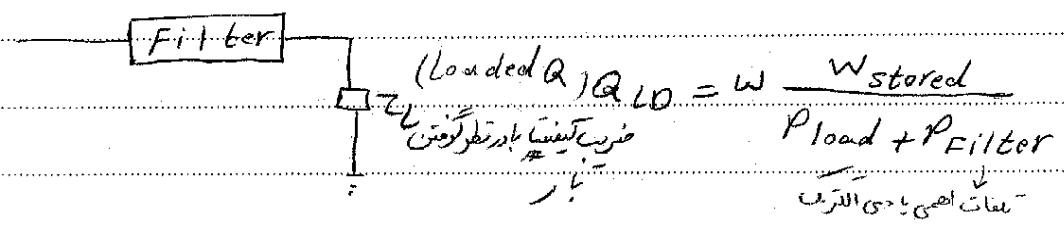 Filter
(Loaded Q) Q LD = ω W stored / P load + P Filter
ZL
ضریب کیفیت با در نظر گرفتن
بار
تلفات اهمی یا دی الکتریک